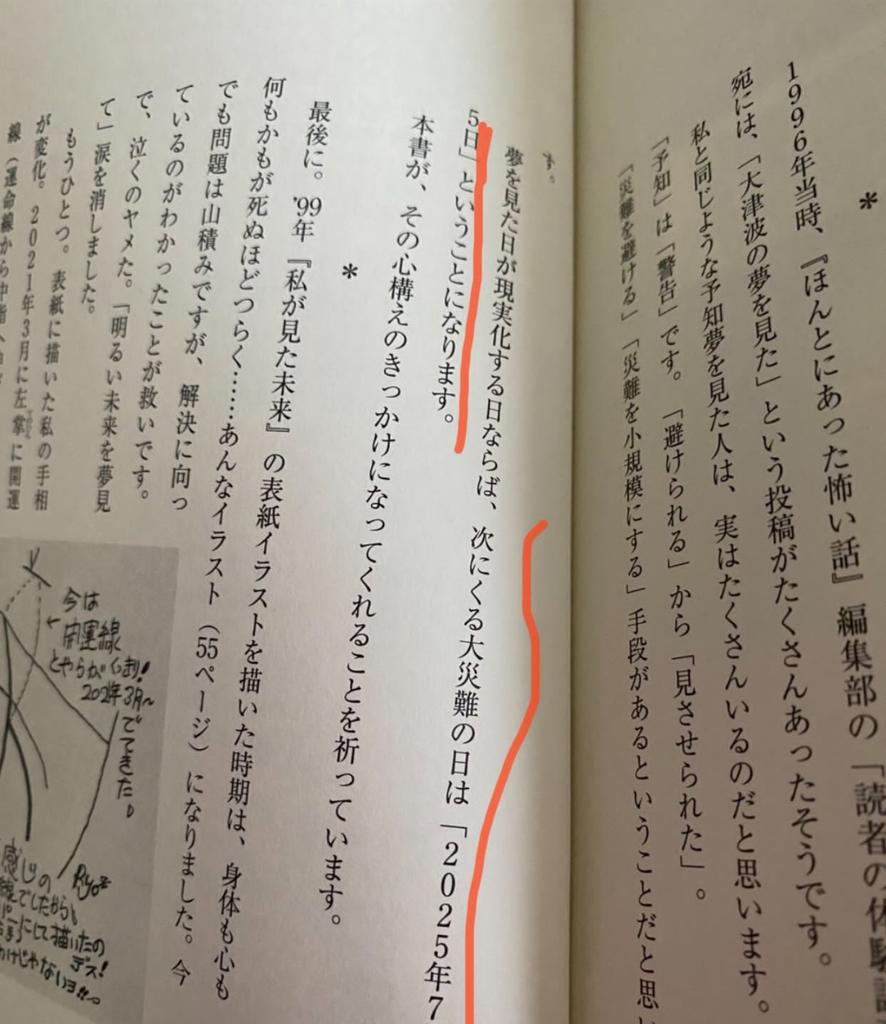 ＊
1996年当時、『ほんとにあった怖い話』編集部の「読者の体験
宛には、「大津波の夢を見た」という投稿がたくさんあったそうです。
私と同じような予知夢を見た人は、実はたくさんいるのだと思います。
「予知」は「警告」です。「避けられる」から「見させられた」。
「災難を避ける」「災難を小規模にする」手段があるということだと思
す。
夢を見た日が現実化する日ならば、次にくる大災難の日は「2025年7
5日」ということになります。
本書が、その心構えのきっかけになってくれることを祈っています。
＊
最後に。'99年『私が見た未来』の表紙イラストを描いた時期は、身体も心も
何もかもが死ぬほどつらく……あんなイラスト（55ページ）になりました。今
でも問題は山積みですが、解決に向っ
ているのがわかったことが救いです。
で、泣くのヤメた。「明るい未来を夢見
て」涙を消しました。
もうひとつ。表紙に描いた私の手相
が変化。2021年3月に左掌に開運
線（運命線から中指へ
今は
開運線
とやらが
2021年3月〜
でてきた。
Ryo
感じの
線でしたから
にして描いたの
デス！
わけじゃないヨ!!